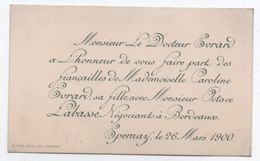 Monsieur Le Docteur Evrard
a l'honneur de vous faire part des
fiançailles de Mademoiselle Caroline
Evrard, sa fille, avec Monsieur Octave
Labasse, Négociant à Bordeaux.
Epernay, le 26 Mars 1900